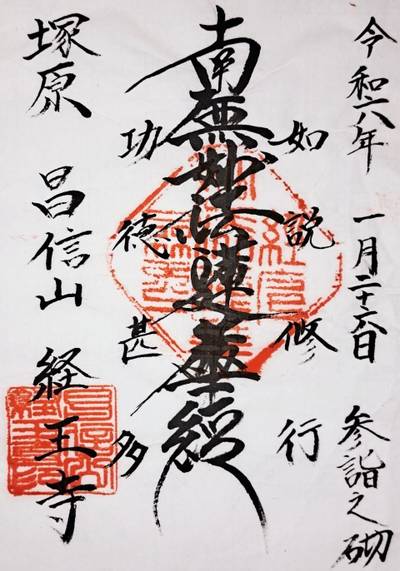 令和六年 一月二十六日 参詣之砌
如説修行
南無妙法蓮華経
功徳甚多
塚原 昌信山 経王寺